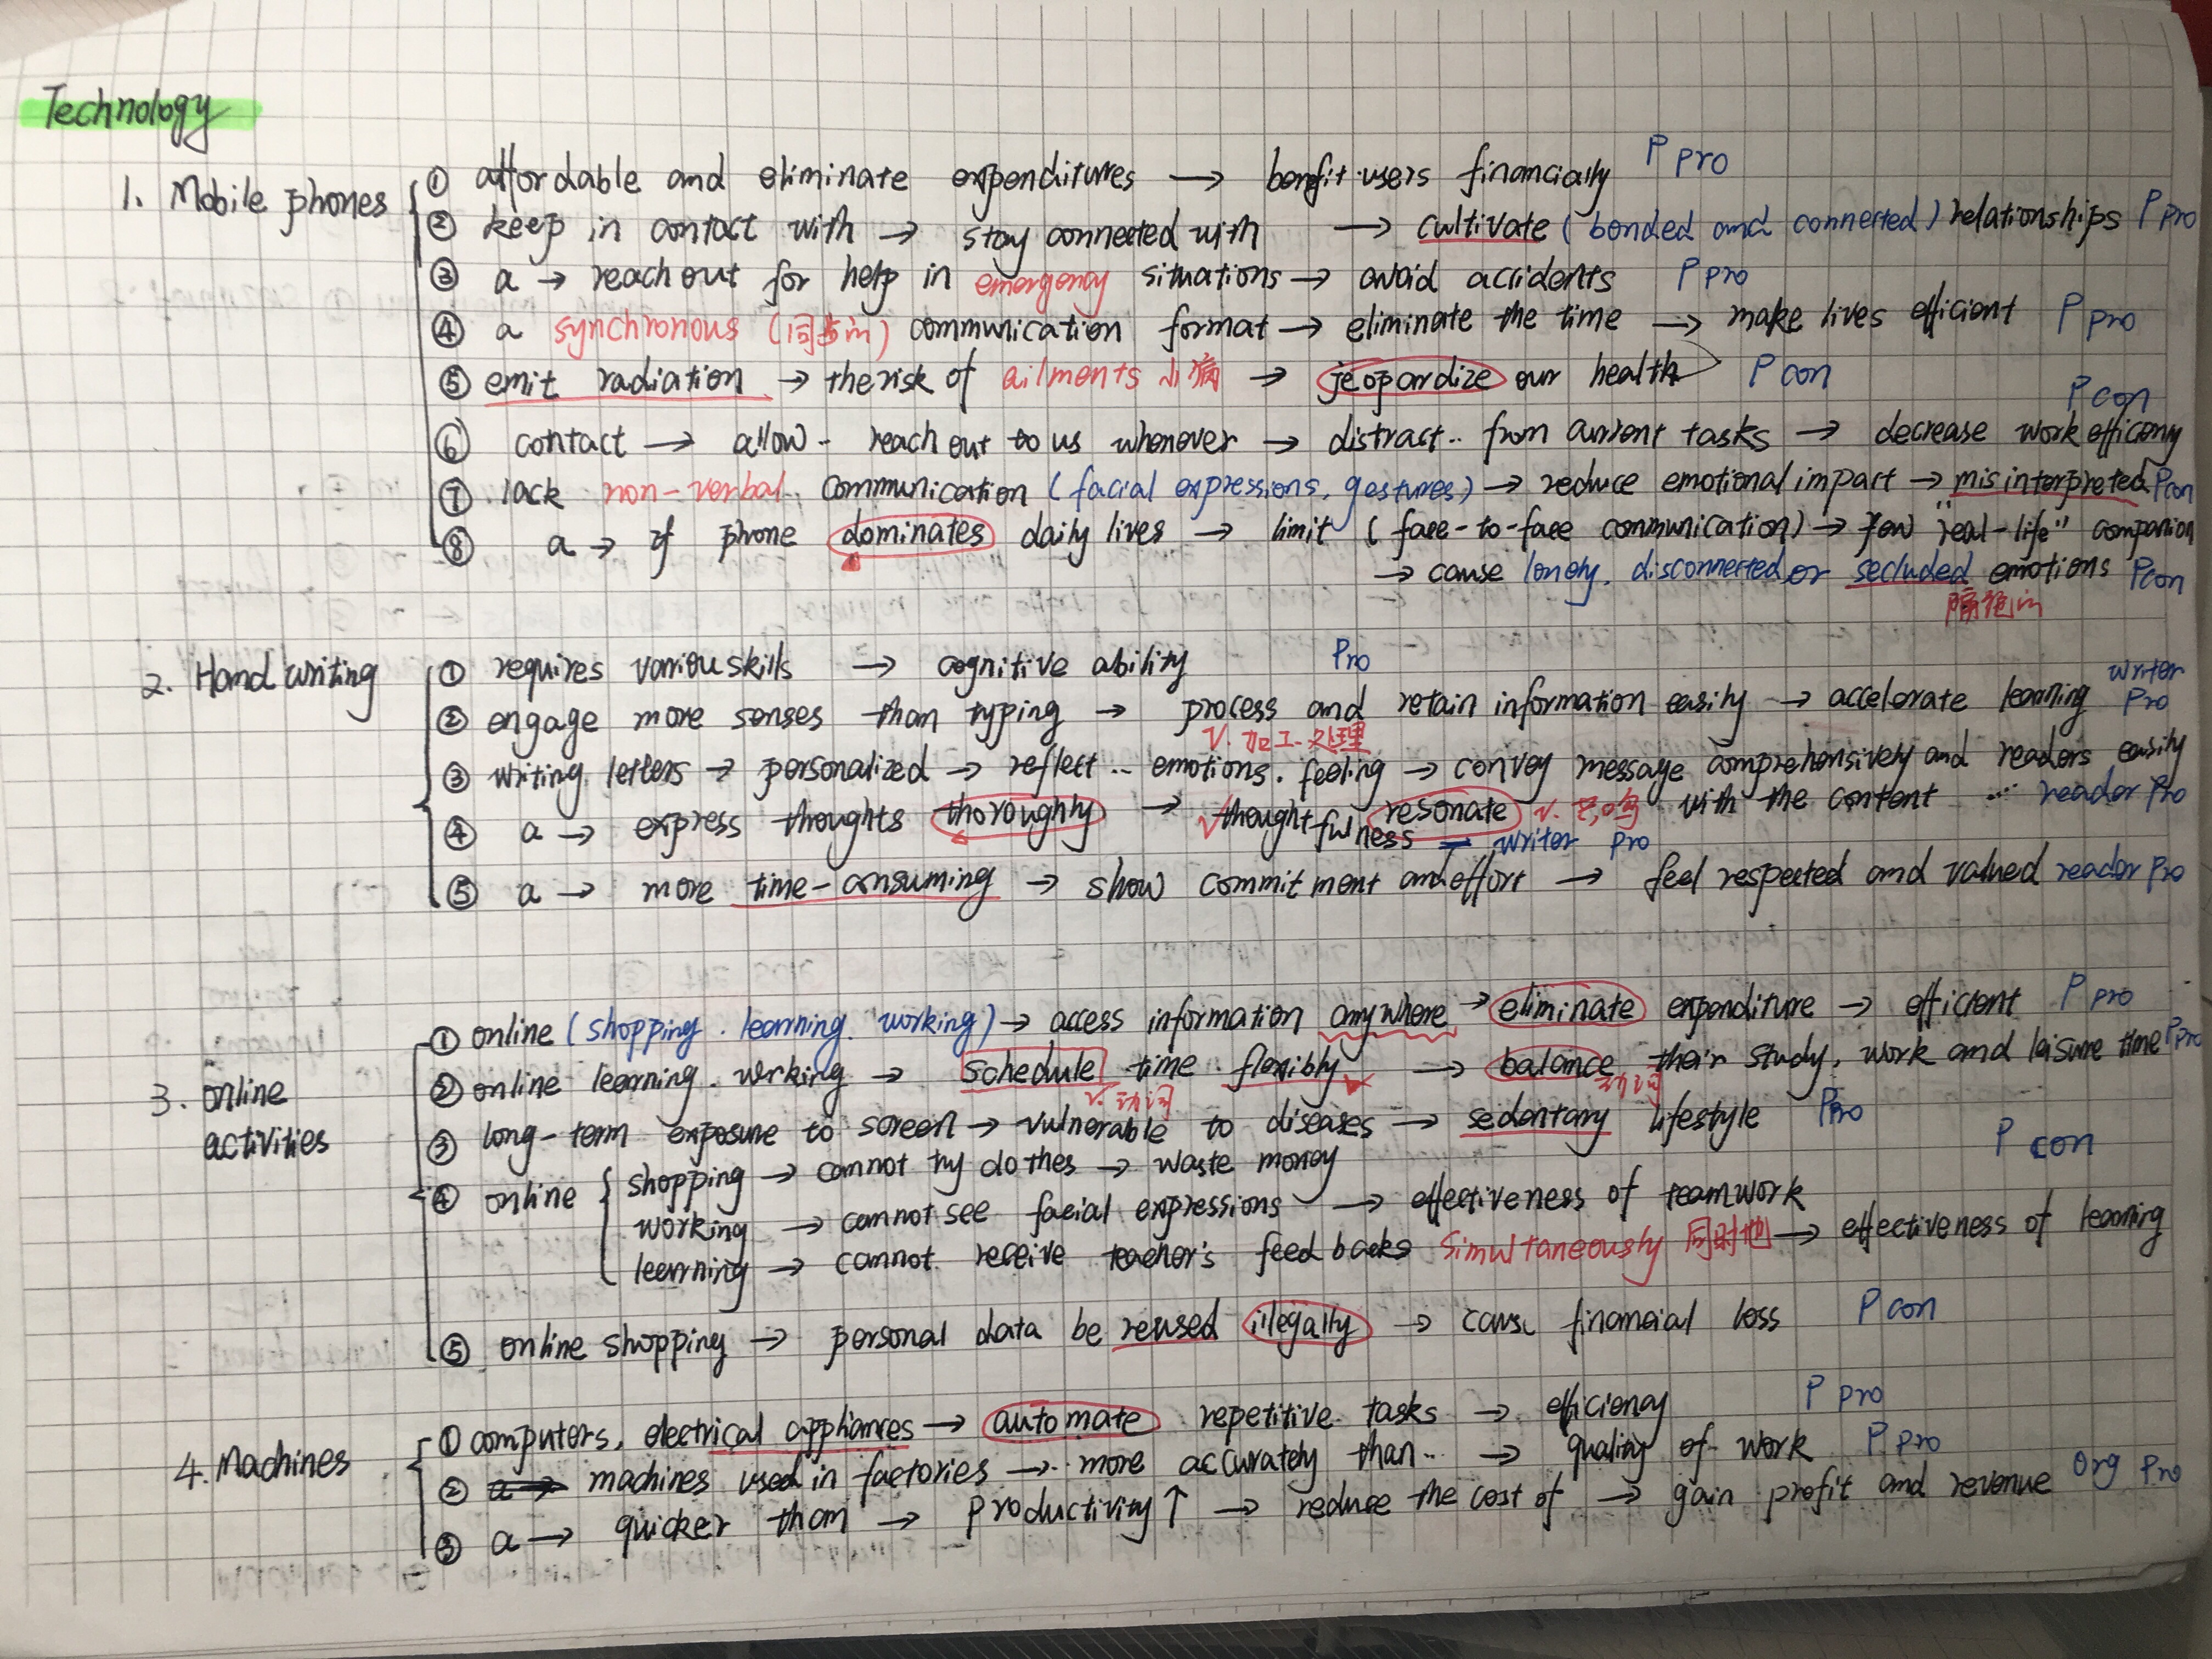 Technology
1. Mobile phones
① affordable and eliminate expenditures → benefit users financially P pro
② keep in contact with → stay connected with → cultivate (bonded and connected) relationships P pro
③ a → reach out for help in emergency situations → avoid accidents P pro
④ a synchronous (同步的) communication format → eliminate the time → make lives efficient P pro
⑤ emit radiation → the risk of ailments 小病 → jeopardize our health P con
⑥ contact → allow - reach out to us whenever → distract .. from current tasks → decrease work efficieny P con
⑦ lack non-verbal communication (facial expressions, gestures) → reduce emotional impact → misinterpreted P con
⑧ a → if phone dominates daily lives → limit (face-to-face communication) → few "real-life" companion
→ cause lonely, disconnected or secluded emotions P con
隔绝的
2. Hand writing
① requires various skills → cognitive ability Pro
② engage more senses than typing → process and retain information easily → accelerate learning writer Pro
v. 加工.处理
③ writing letters → personalized → reflect .. emotions. feeling → convey message comprehensively and readers easily
resonate v. 共鸣 with the content ... reader Pro
④ a → express thoughts thoroughly → thoughtfulness – writer pro
⑤ a → more time-consuming → show commitment and effort → feel respected and valued reader Pro
3. online activities
① online (shopping. learning. working) → access information anywhere → eliminate expenditure → efficient P pro
② online learning. working → schedule time flexibly → balance their study, work and leisure time P pro
v. 动词 动词
③ long-term exposure to screen → vulnerable to diseases → sedentary lifestyle P pro
④ online { shopping → cannot try clothes → waste money P con
working → cannot see facial expressions → effectiveness of teamwork
learning → cannot receive teacher's feedbacks simultaneously 同时地 → effectiveness of learning
⑤ online shopping → personal data be reused illegally → cause financial loss P con
4. Machines
① computers, electrical appliances → automate repetitive tasks → efficiency P pro
② machines used in factories → more accurately than .. → quality of work P pro
③ a → quicker than → productivity ↑ → reduce the cost of → gain profit and revenue org pro